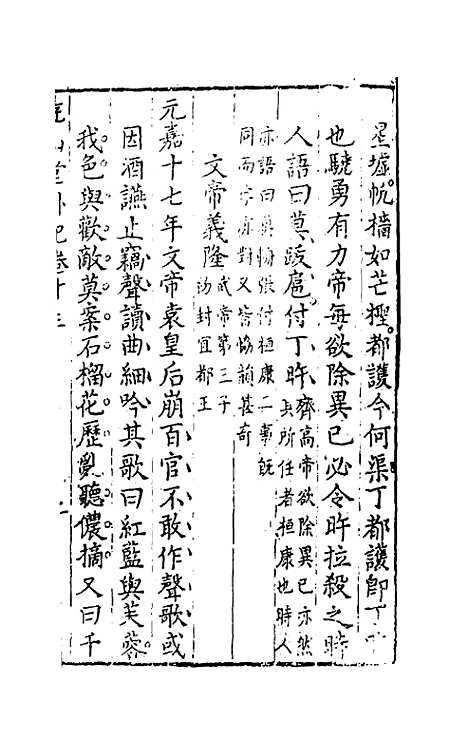 星墟帆檣如芒桱都護今何渠丁都護即丁旿
也驍勇有力帝每欲除異已必令旿拉殺之時
人語曰莫跋扈付丁旿齊高帝欲除異已亦然
其所任者桓康也時人
亦語曰莫輈張付桓康二事旣
同而字亦對又皆協韻甚奇
文帝義隆武帝第三子
初封宜都王
元嘉十七年文帝袁皇后崩百官不敢作聲歌或
因酒讌止竊聲讀曲細吟其歌曰紅藍與芙蓉
我色與歡敵莫案石榴花歷亂聽儂摘又曰千
堯山堂外紀卷十三